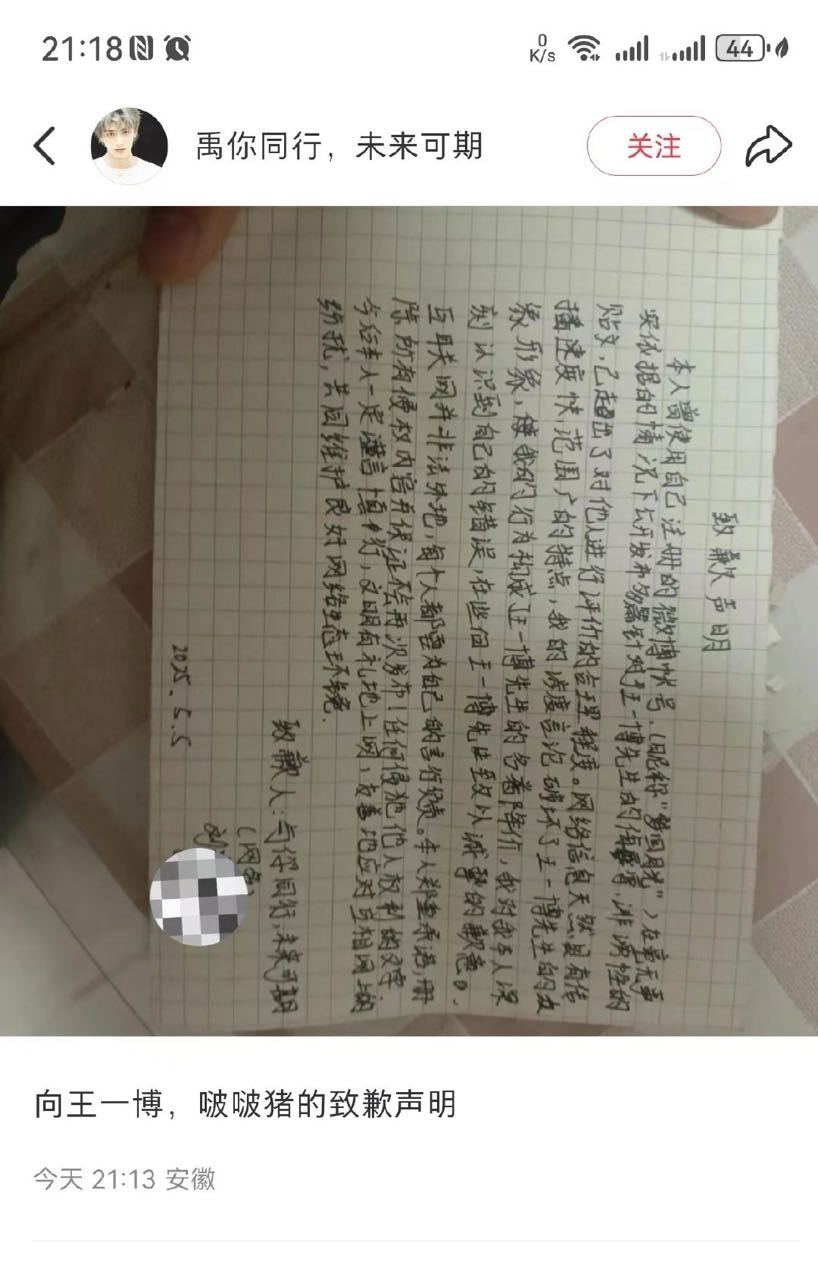 21:18
0
K/s
44
禹你同行，未来可期
关注
致歉声明
本人曾使用自己注册的微博帐号，(昵称"梦回月光")在毫无事
实依据的情况下公开发布多篇针对王一博先生的侮辱、诽谤性的
贴文，已超出了对他人进行评价的合理程度。网络信息天然具有传
播速度快，范围广的特点，我的涉虚言论破坏了王一博先生的
形象，使我的行为构成了王一博先生的名誉降价，我对我本人深
刻认识到自己的错误，在此向王一博先生致以诚挚的歉意。
互联网并非法外地，每个人都要为自己的言行负责。本人郑重承诺，删
除所有侵权内容并保证不会再次发布！任何侵犯他人权利的文字
今后本人一定谨言慎行，文明有礼地上网，友善地应对互相网上的
纷扰，共同维护良好网络生态环境。
致歉人：与你同行，未来可期
(网名)
刘
2025.5.5
向王一博，啵啵猪的致歉声明
今天 21:13 安徽